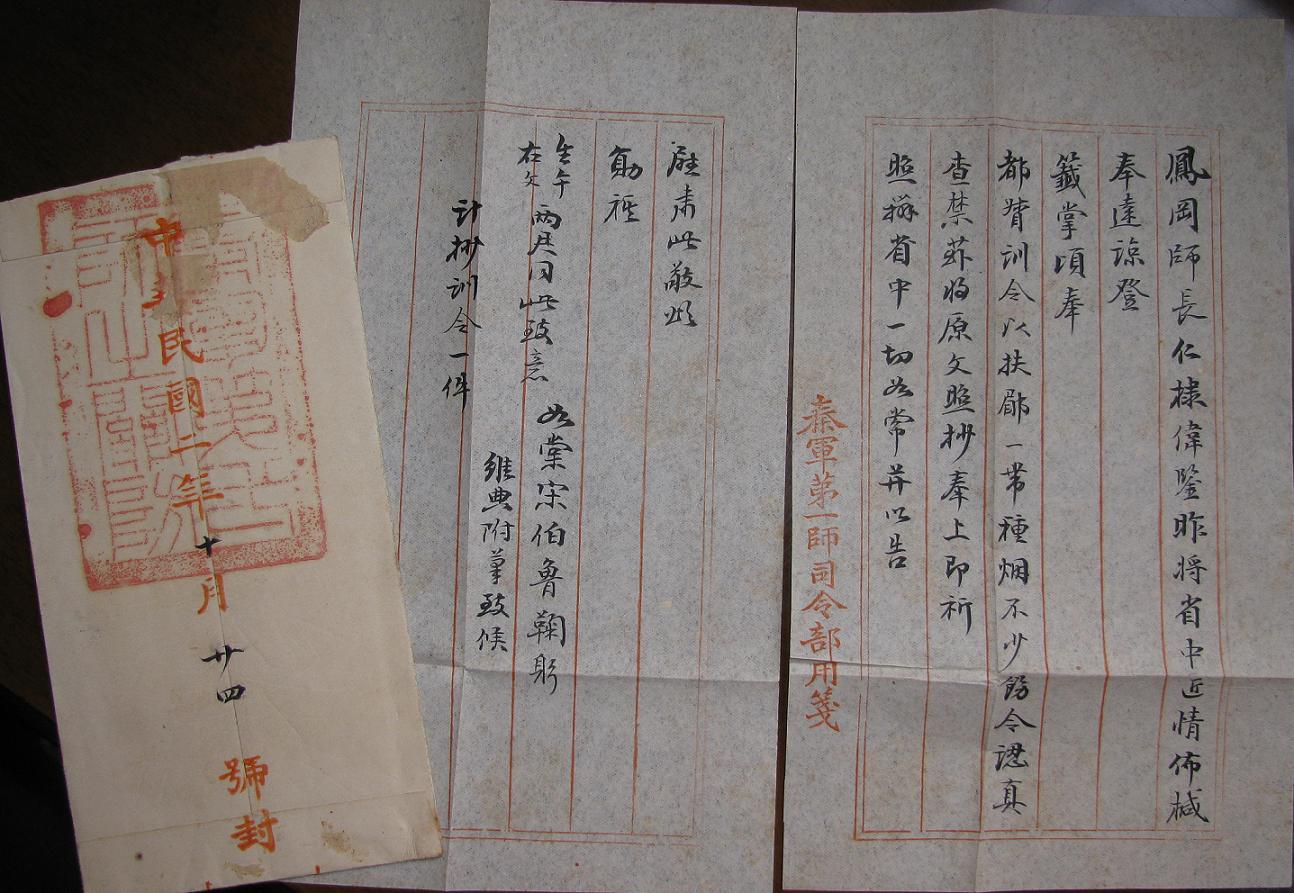 鳳岡師長仁棣偉鑒昨將省中近情佈椷
奉達諒登
籤掌頃奉
都督訓令以扶郿一帶種烟不少飭令認真
查禁茲將原文照抄奉上即祈
照辦省中一切如常并以告
秦軍第一師司令部用箋
肅此敬頌
勛祺
兩兄同此致意 如棠宋伯魯鞠躬
維典附筆致候
計抄訓令一件
中華民國二年十月廿四 號封